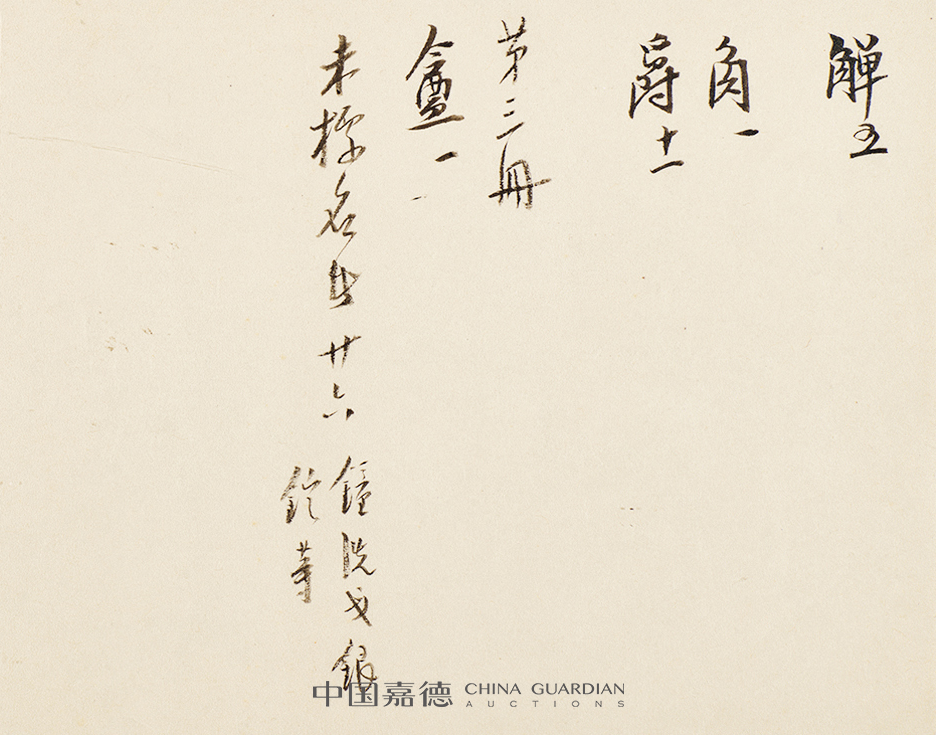 觶五
角一
爵十一
第三冊
盦一
未標名者廿六
鐘洗戈銀
鈴等
中国嘉德 CHINA GUARDIAN
AUCTIONS